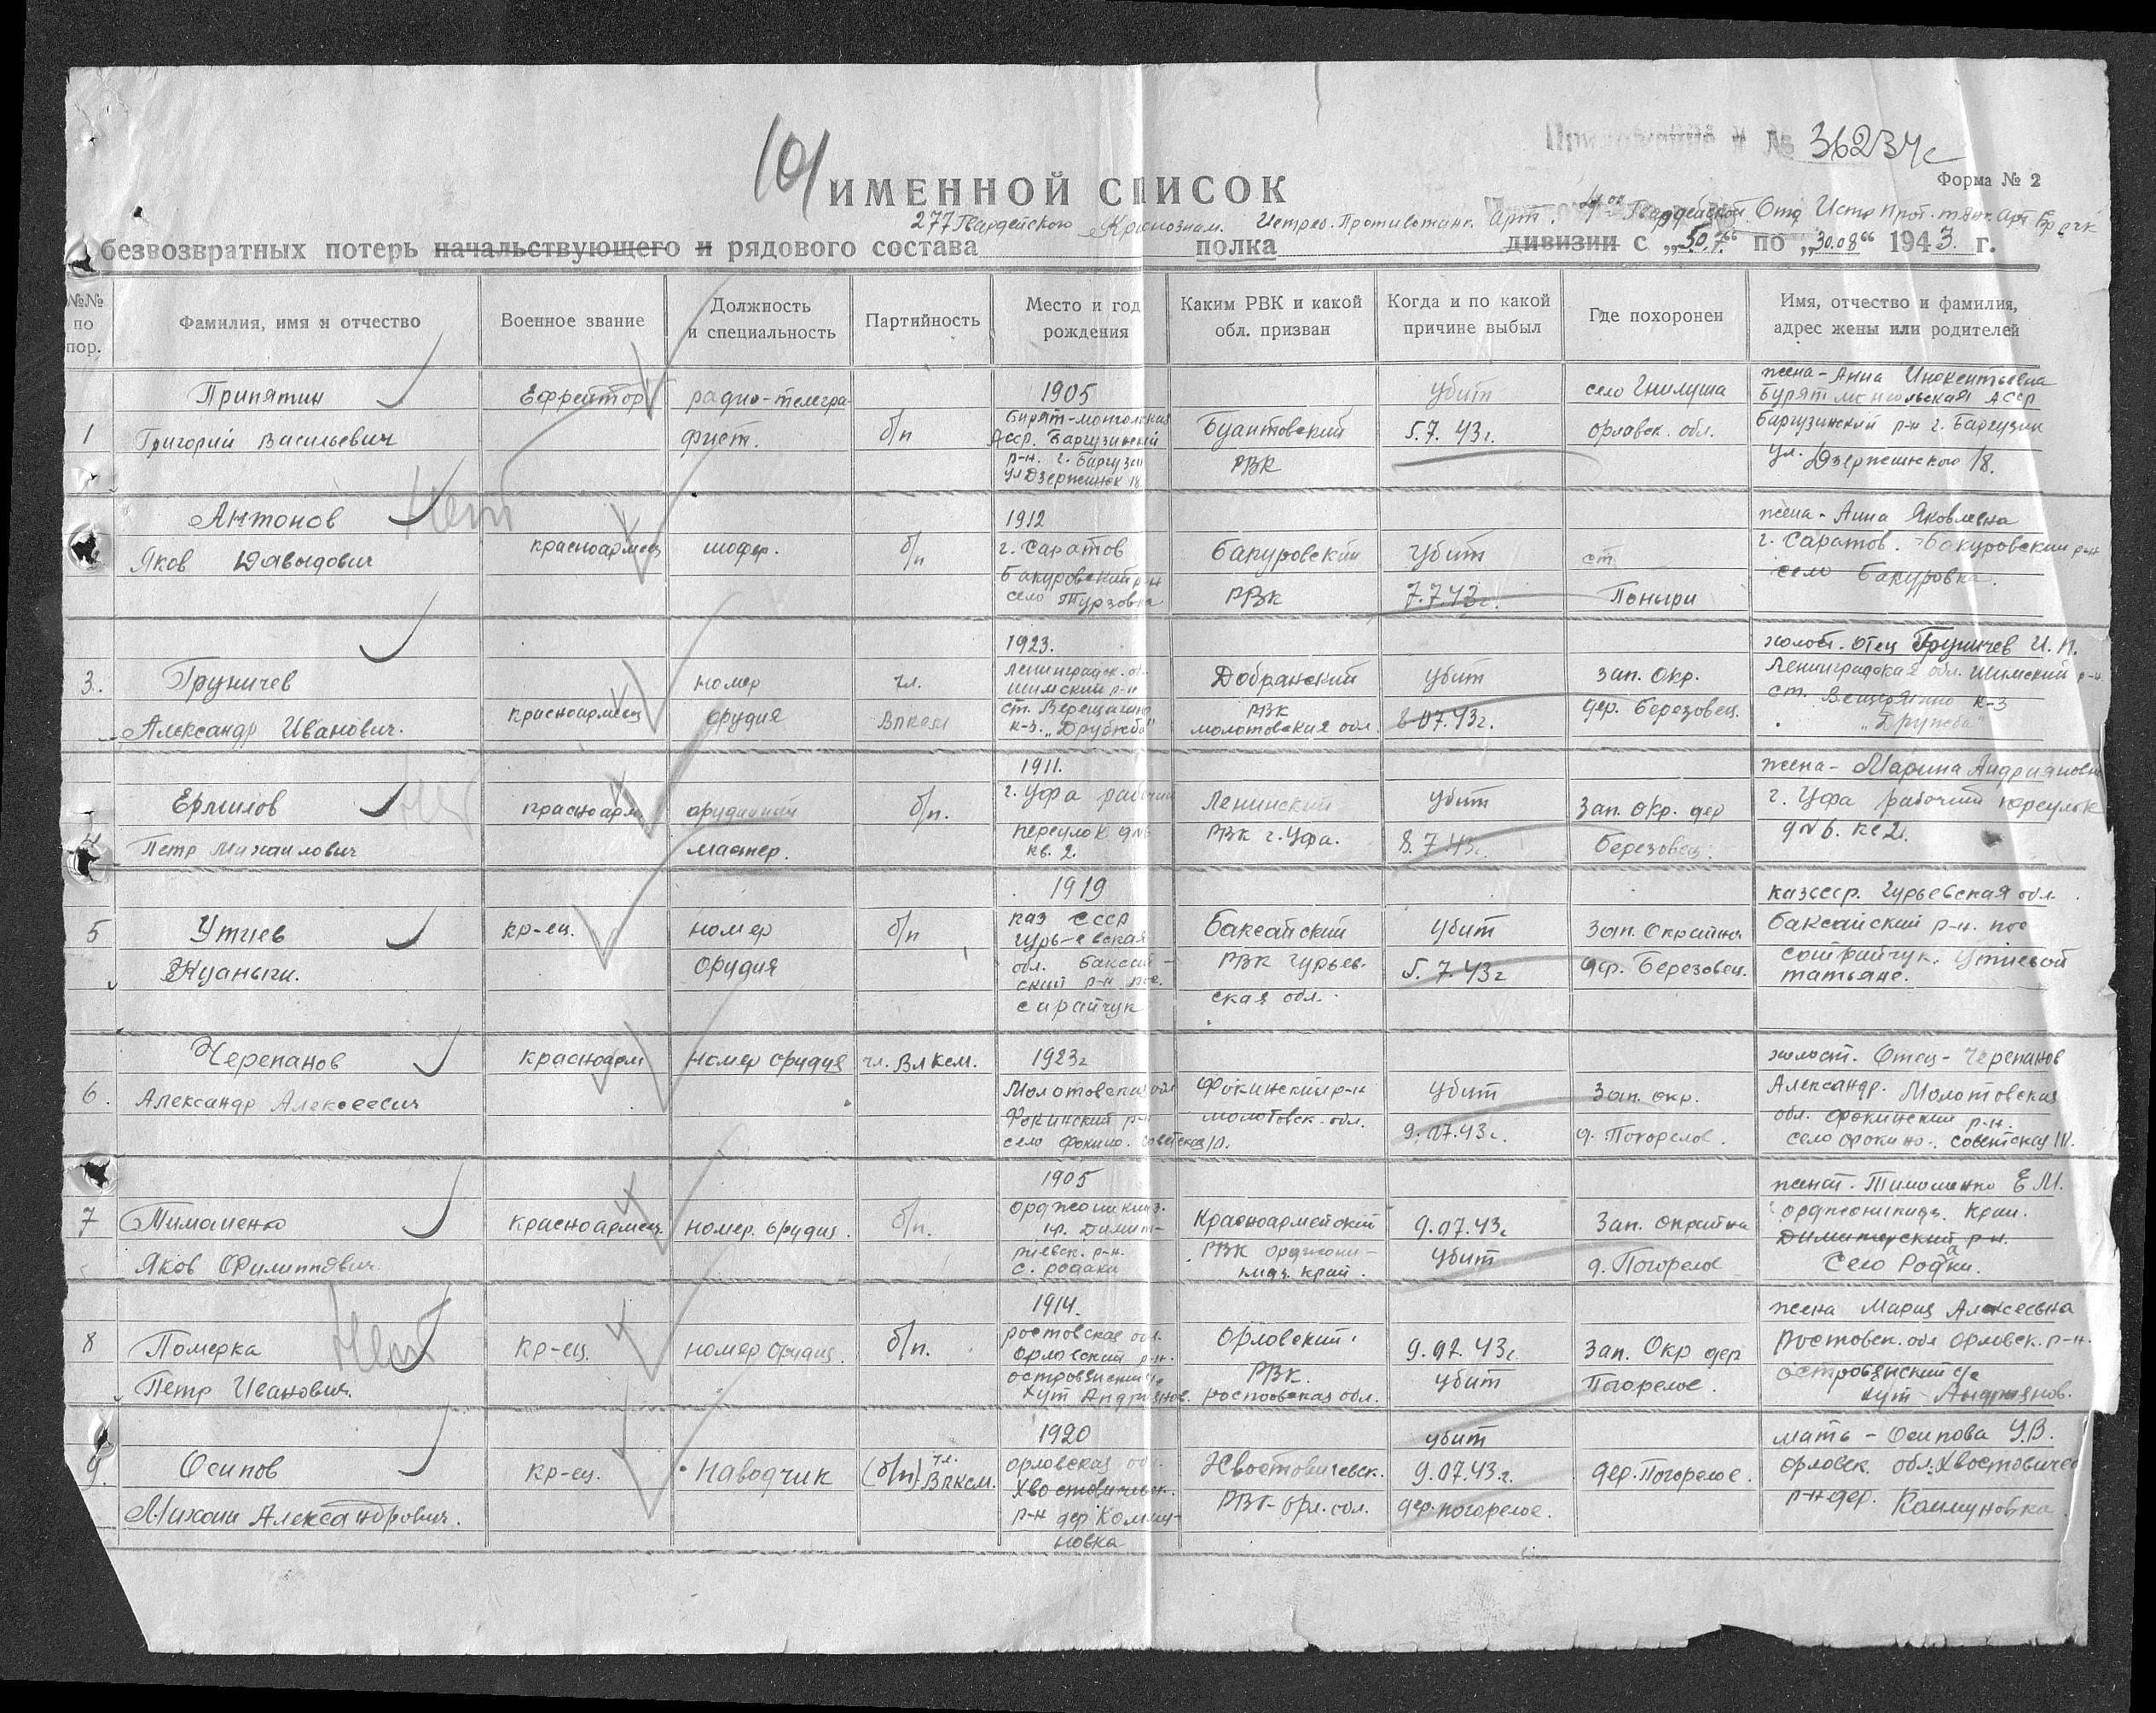 101
Приложение к № 36234с
ИМЕННОЙ СПИСОК
Форма № 2
277 Гвардейского Краснознам. Истреб. Противотанк. Арт. 4ой Гвардейской Отд Истр Прот. танк. Арт Бр
безвозвратных потерь начальствующего и рядового состава полка дивизии с „5.07.“ по „30.08“ 1943 г.
№№ по пор.
Фамилия, имя и отчество
Военное звание
Должность и специальность
Партийность
Место и год рождения
Каким РВК и какой обл. призван
Когда и по какой причине выбыл
Где похоронен
Имя, отчество и фамилия, адрес жены или родителей
1
Припятин
Григорий Васильевич
Ефрейтор
радио-телегра-
фист.
б/п
1905
Бурят-монгольская
Асср. Баргузинский
р-н. г. Баргузин
ул Дзержинск 18
Буантовский
РВК
убит
5.7.43г.
село Гнилуша
орловск. обл.
жена - Анна Инокентьевна
Бурят монгольская АССР
Баргузинский р-н г. Баргузин
ул. Дзержинского 18.
Антонов
Нет
Яков Давыдович
красноармеец
шофер.
б/п
1912
г. Саратов
Бакуровский р-н
село Турзовка
Бакуровский
РВК
убит
7.7.43г.
ст.
Поныри
жена - Анна Яковлевна
г. Саратов. Бакуровский р-н
село Бакуровка.
3.
Груничев
Александр Иванович.
красноармеец
номер
орудия
чл.
ВЛКСМ
1923.
Ленинградск. об.
Шимский р-н
ст. Верещагино
к-з. „Дружба"
Добрянский
РВК
молотовская обл.
убит
8.07.43г.
зап. Окр.
дер. Березовец.
холост. отец Груничев И. П.
Ленинградская обл. Шимский р-н.
ст. к-з
„Дружба"
4
Ермилов
Нет
Петр Михаилович
красноарм
орудийный
мастер.
б/п.
1911.
г. Уфа рабочий
переулок д№6
кв. 2.
Ленинский
РВК г. Уфа.
убит
8.7.43г.
Зап. Окр. дер
березовец.
жена - Марина Андрияновна
г. Уфа рабочий переулок
д№6. кв 2.
5
Утиев
Жуаныги.
кр-ец.
номер
орудия
б/п
1919
каз ссср
гурь-евская
обл. баксай-
ский р-н пос.
сарайчук
Баксайский
РВК Гурьев-
ская обл.
убит
5.7.43г
Зап. Окрайна
дер. Березовец.
казссср. Гурьевская обл.
баксайский р-н. пос
Утиевой
татьяне.
6.
Черепанов
Александр Алексеевич
красноарм
номер орудия
чл. Влксм.
1923г
Молотовская обл
Фокинский р-н
село Фокино. Советская 10.
Фокинский р-н
молотовск. обл.
убит
9.07.43г.
Зап. окр.
д. Погорелов.
холост. Отец - Черепанов
Александр. Молотовская
обл. Фокинский р-н.
село Фокино. Советская 10.
7
Тимошенко
Яков Филиппович
красноармеец
номер. орудия.
б/п.
1905
орджоникидз.
кр. Димит-
риевск. р-н.
с. родаки
Красноармейский
РВК орджони-
кидз. край.
9.07.43г
убит
Зап. окрайна
д. Погорелов
женат. Тимошенко Е М.
орджоникидз. край.
Димитерский р-н.
село Родаки.
8
Померка
Нет
Петр Иванович.
кр-ец.
номер орудия.
б/п.
1914.
ростовская обл.
орловский р-н.
островянский с/с
хут Андриянов.
Орловский
РВК.
ростовская обл.
9.07.43г
убит
Зап. Окр дер
Погорелое.
жена Мария Алексеевна
Ростовск. обл Орловск. р-н.
островянский с/с
хут Андриянов.
9.
Осипов
Михаил Александрович.
кр-ец.
Наводчик
(б/п) чл. ВЛКСМ.
1920
орловская обл.
Хвостовическ.
р-н дер Комму-
новка
Хвостовическ.
РВК-Орл. обл.
убит
9.07.43г.
дер. погорелое.
дер. Погорелое.
мать - Осипова У.В.
орловск. обл. Хвостовичес
р-н дер. Коммуновка.